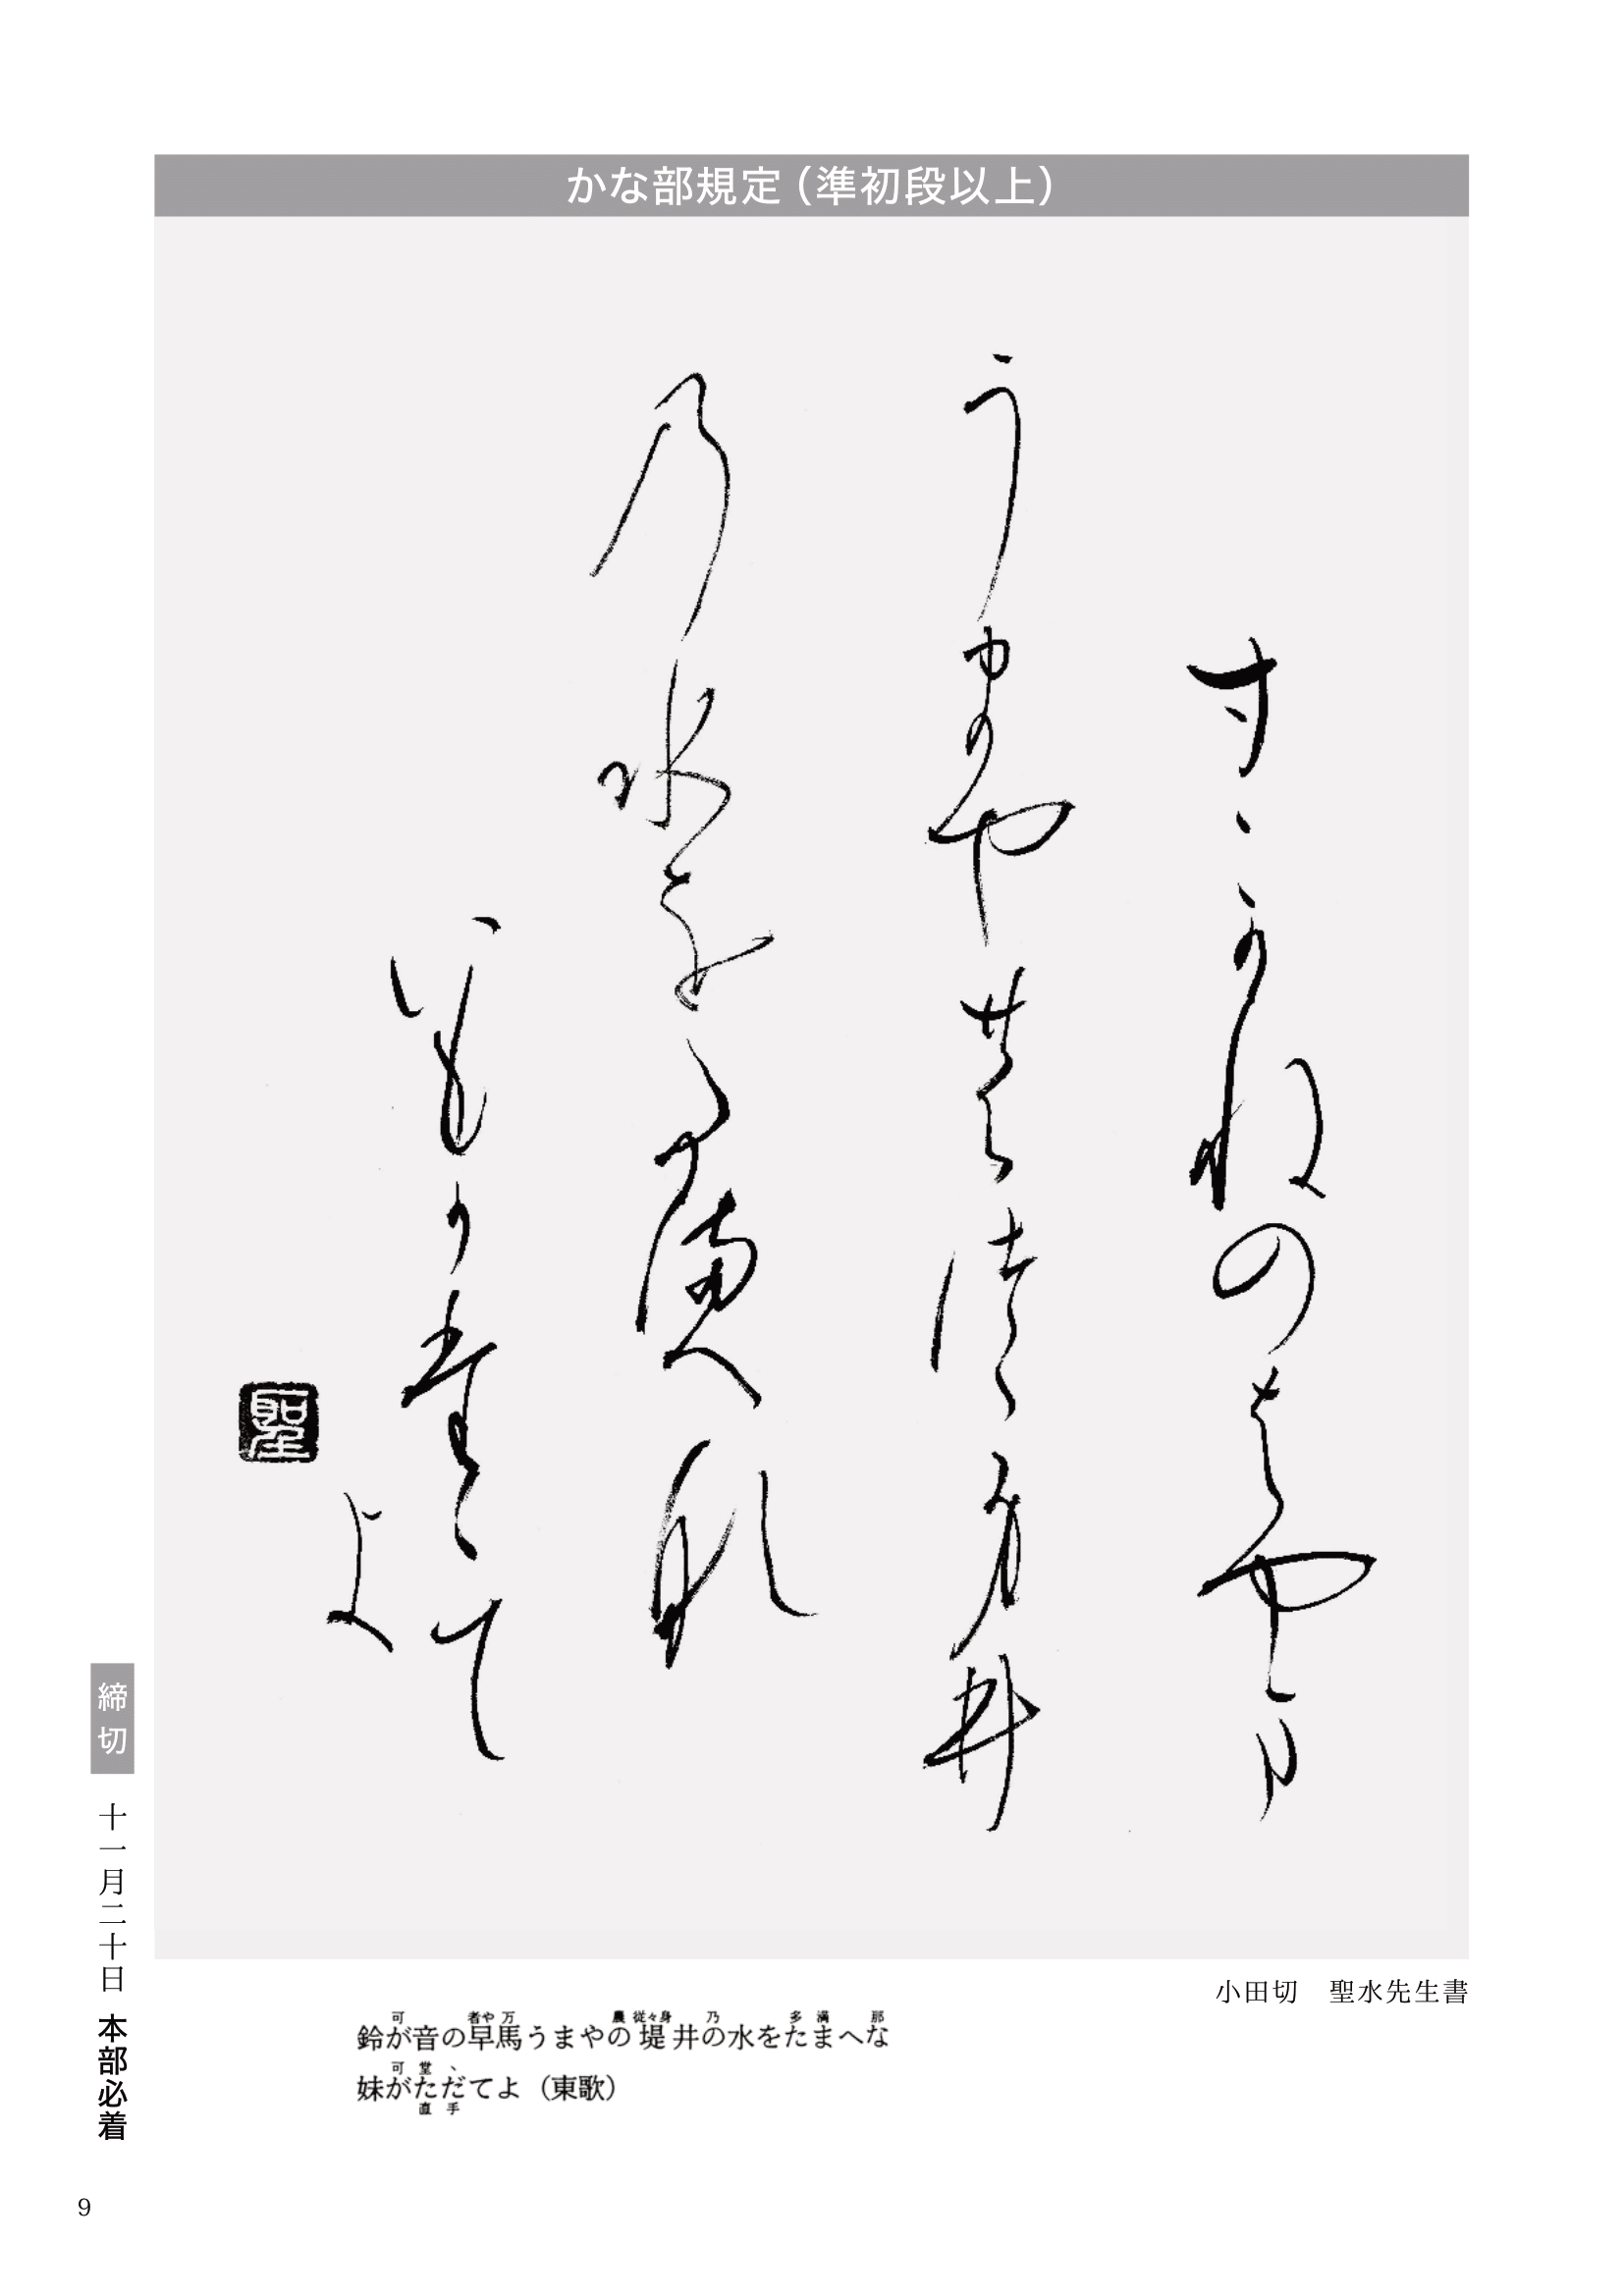 かな部規定（準初段以上）
すゝかねのはやま
うまや農徒々身井
乃水を多満へ那
いもか堂ゝてよ
聖
小田切　聖水先生書
鈴が音の早馬うまやの堤井の水をたまへな
可　者や万　農　従々身　乃　多　満　那
妹がただてよ（東歌）
可　堂　ゝ
直　手
締切　十一月二十日　本部必着
9